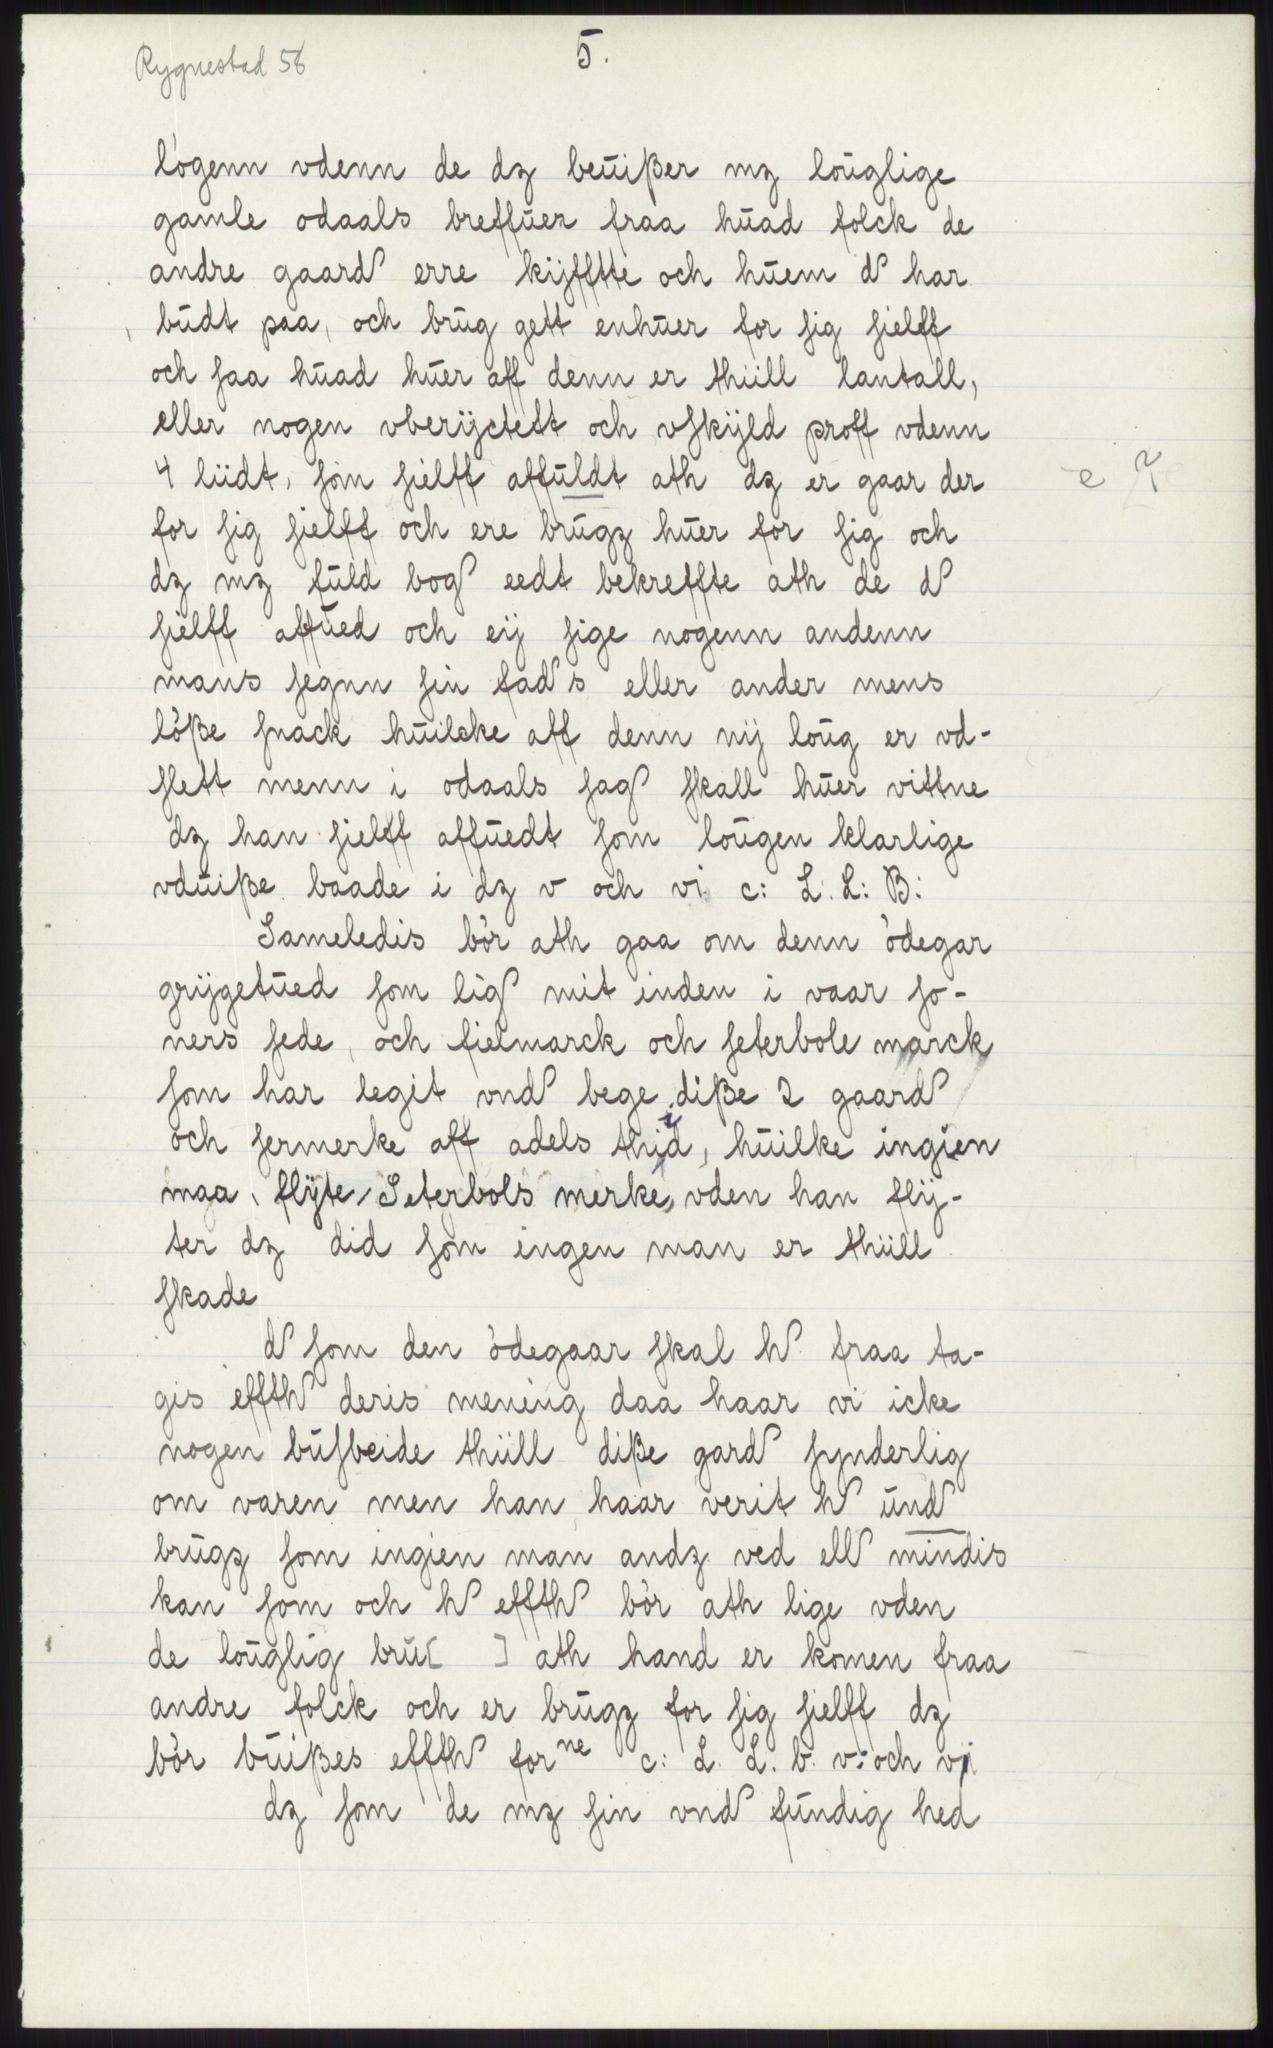 Rygnestad 56
5.
lógenn vdenn de dz beuißer mz louglige
gamle odaals breffuer fraa huad folck de
andre gaard erre kijfftte och huem d har
budt paa, och brug gett enhuer for sig sielff
och saa huad huer aff denn er thiill lantall,
eller nogen vberijctett och vskijld proff vdenn
4 liidt, som sielff affuldt ath dz er gaar der
for sig sielff och ere brugz huer for sig och
dz mz fuld bog eedt bekreffte ath de d
sielff affued och eij sige nogenn andenn
mans segnn sin fads eller ander mens
löße snack huilcke aff denn nij loug er vd-
slett menn i odaals sag skall huer vittne
dz han sielff affuedt som lougen klarlige
vduiße baade i dz v och vi c: L. L: B:
Sameledis bör ath gaa om denn ödegar
grijgetued som lig mit inden i vaar so-
ners sede, och fielmarck och seterbole marck
som har legit vnd bege diße 2 gaard
och sermerke aff adels thiid, huilke ingien
maa, flÿte Seterbols merke, vden han flij-
ter dz did som ingen man er thiill
skade
d som den ödegaar skal h fraa ta-
gis effth deris mening daa haar vi icke
nogen busbeide thiill diße gard synderlig
om varen men han haar verit h und
brugz som ingien man andz ved ell mindis
kan som och h effth bör ath lige vden
de louglig bru[ ] ath hand er komen fraa
andre folck och er brugz for sig sielff dz
bör buißes effth forne c: L. L. b. v: och vi
dz som de mz sin vnd fundig hed